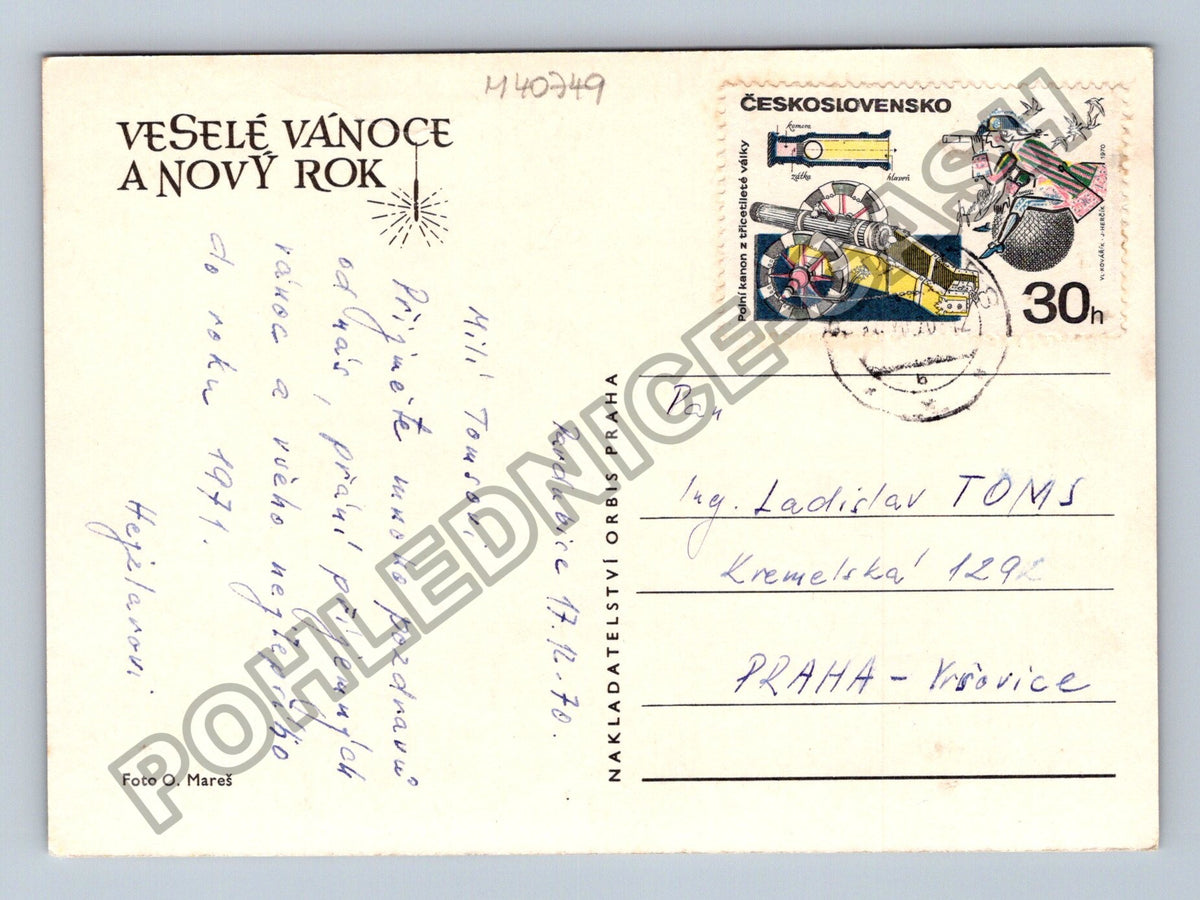 M40749
VESELÉ VÁNOCE
A NOVÝ ROK
ČESKOSLOVENSKO
Polní kanon z třicetileté války
komora
zátka hlaveň
1970
VL. KOVÁŘÍK - J. HERČÍK
30h
Pardubice 17.12-70.
Milí Tomsovi,
Přijměte mnoho pozdravů
od nás, přání příjemných
vánoc a všeho nejlepšího
do roku 1971.
Hejzlarovi.
Foto O. Mareš
NAKLADATELSTVÍ ORBIS PRAHA
Pan
Ing. Ladislav TOMS
Kremelská
PRAHA - Vršovice
POHLEDNICE-SASH